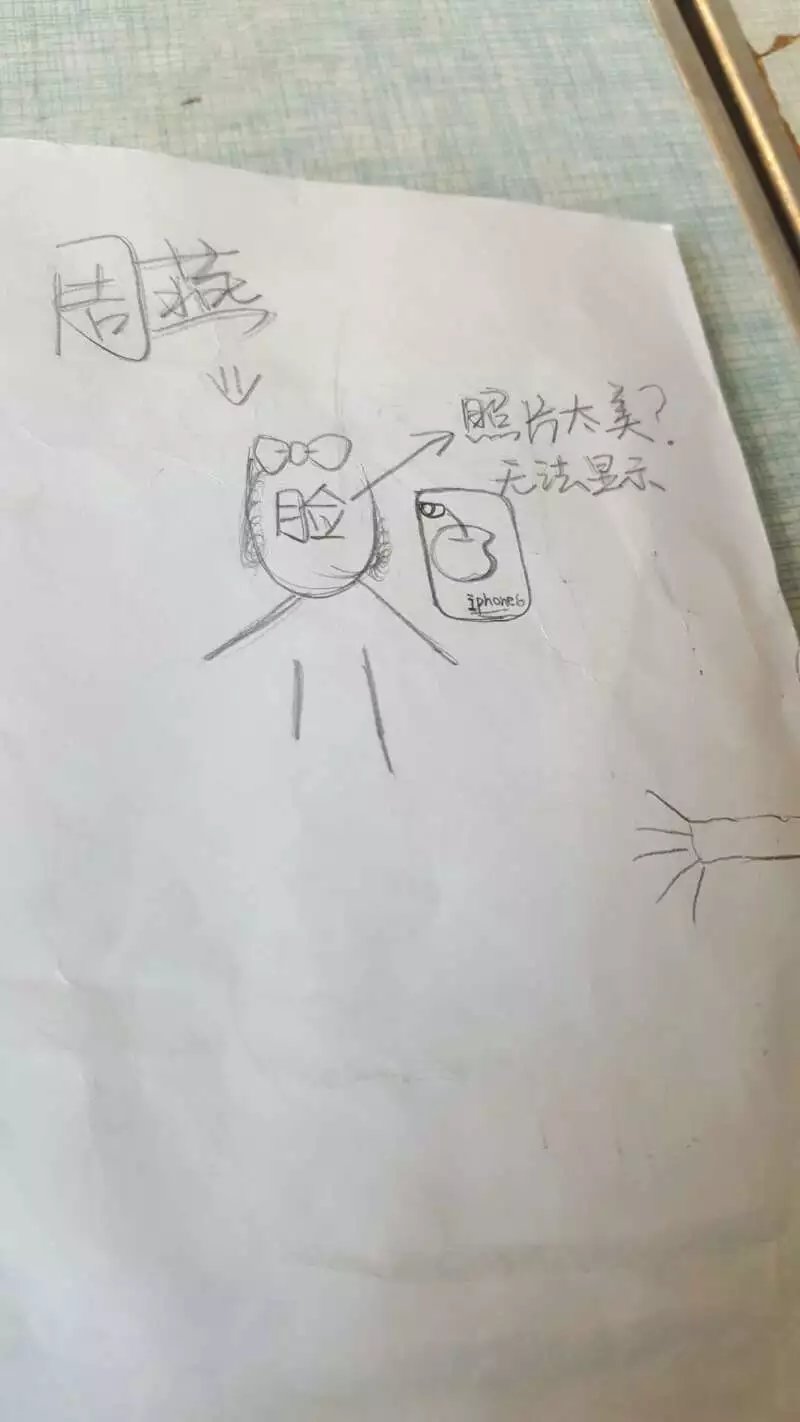 周燕
照片太美?
无法显示
脸
iphone6